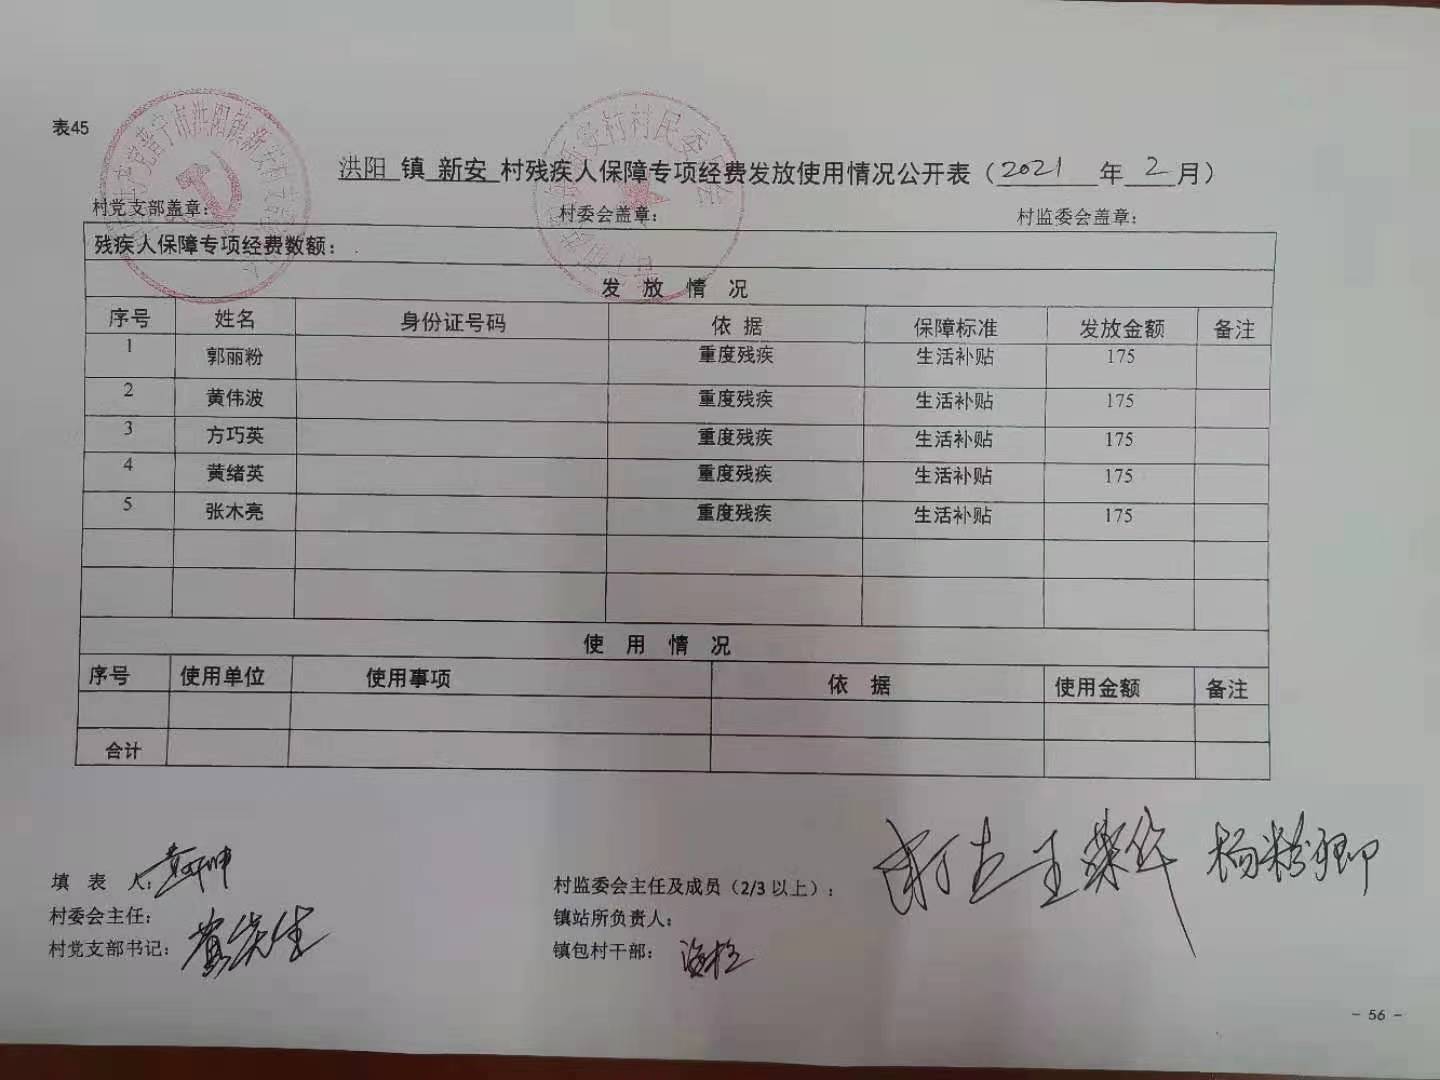 表45
洪阳 镇 新安 村残疾人保障专项经费发放使用情况公开表（2021 年 2 月）
村党支部盖章： 村委会盖章： 村监委会盖章：
残疾人保障专项经费数额：
发 放 情 况
序号 姓名 身份证号码 依 据 保障标准 发放金额 备注
1 郭丽粉 重度残疾 生活补贴 175
2 黄伟波 重度残疾 生活补贴 175
3 方巧英 重度残疾 生活补贴 175
4 黄绪英 重度残疾 生活补贴 175
5 张木亮 重度残疾 生活补贴 175
使 用 情 况
序号 使用单位 使用事项 依 据 使用金额 备注
合计
填 表 人：
村委会主任：
村党支部书记：
村监委会主任及成员（2/3 以上）： 杨粉卿
镇站所负责人：
镇包村干部：
- 56 -